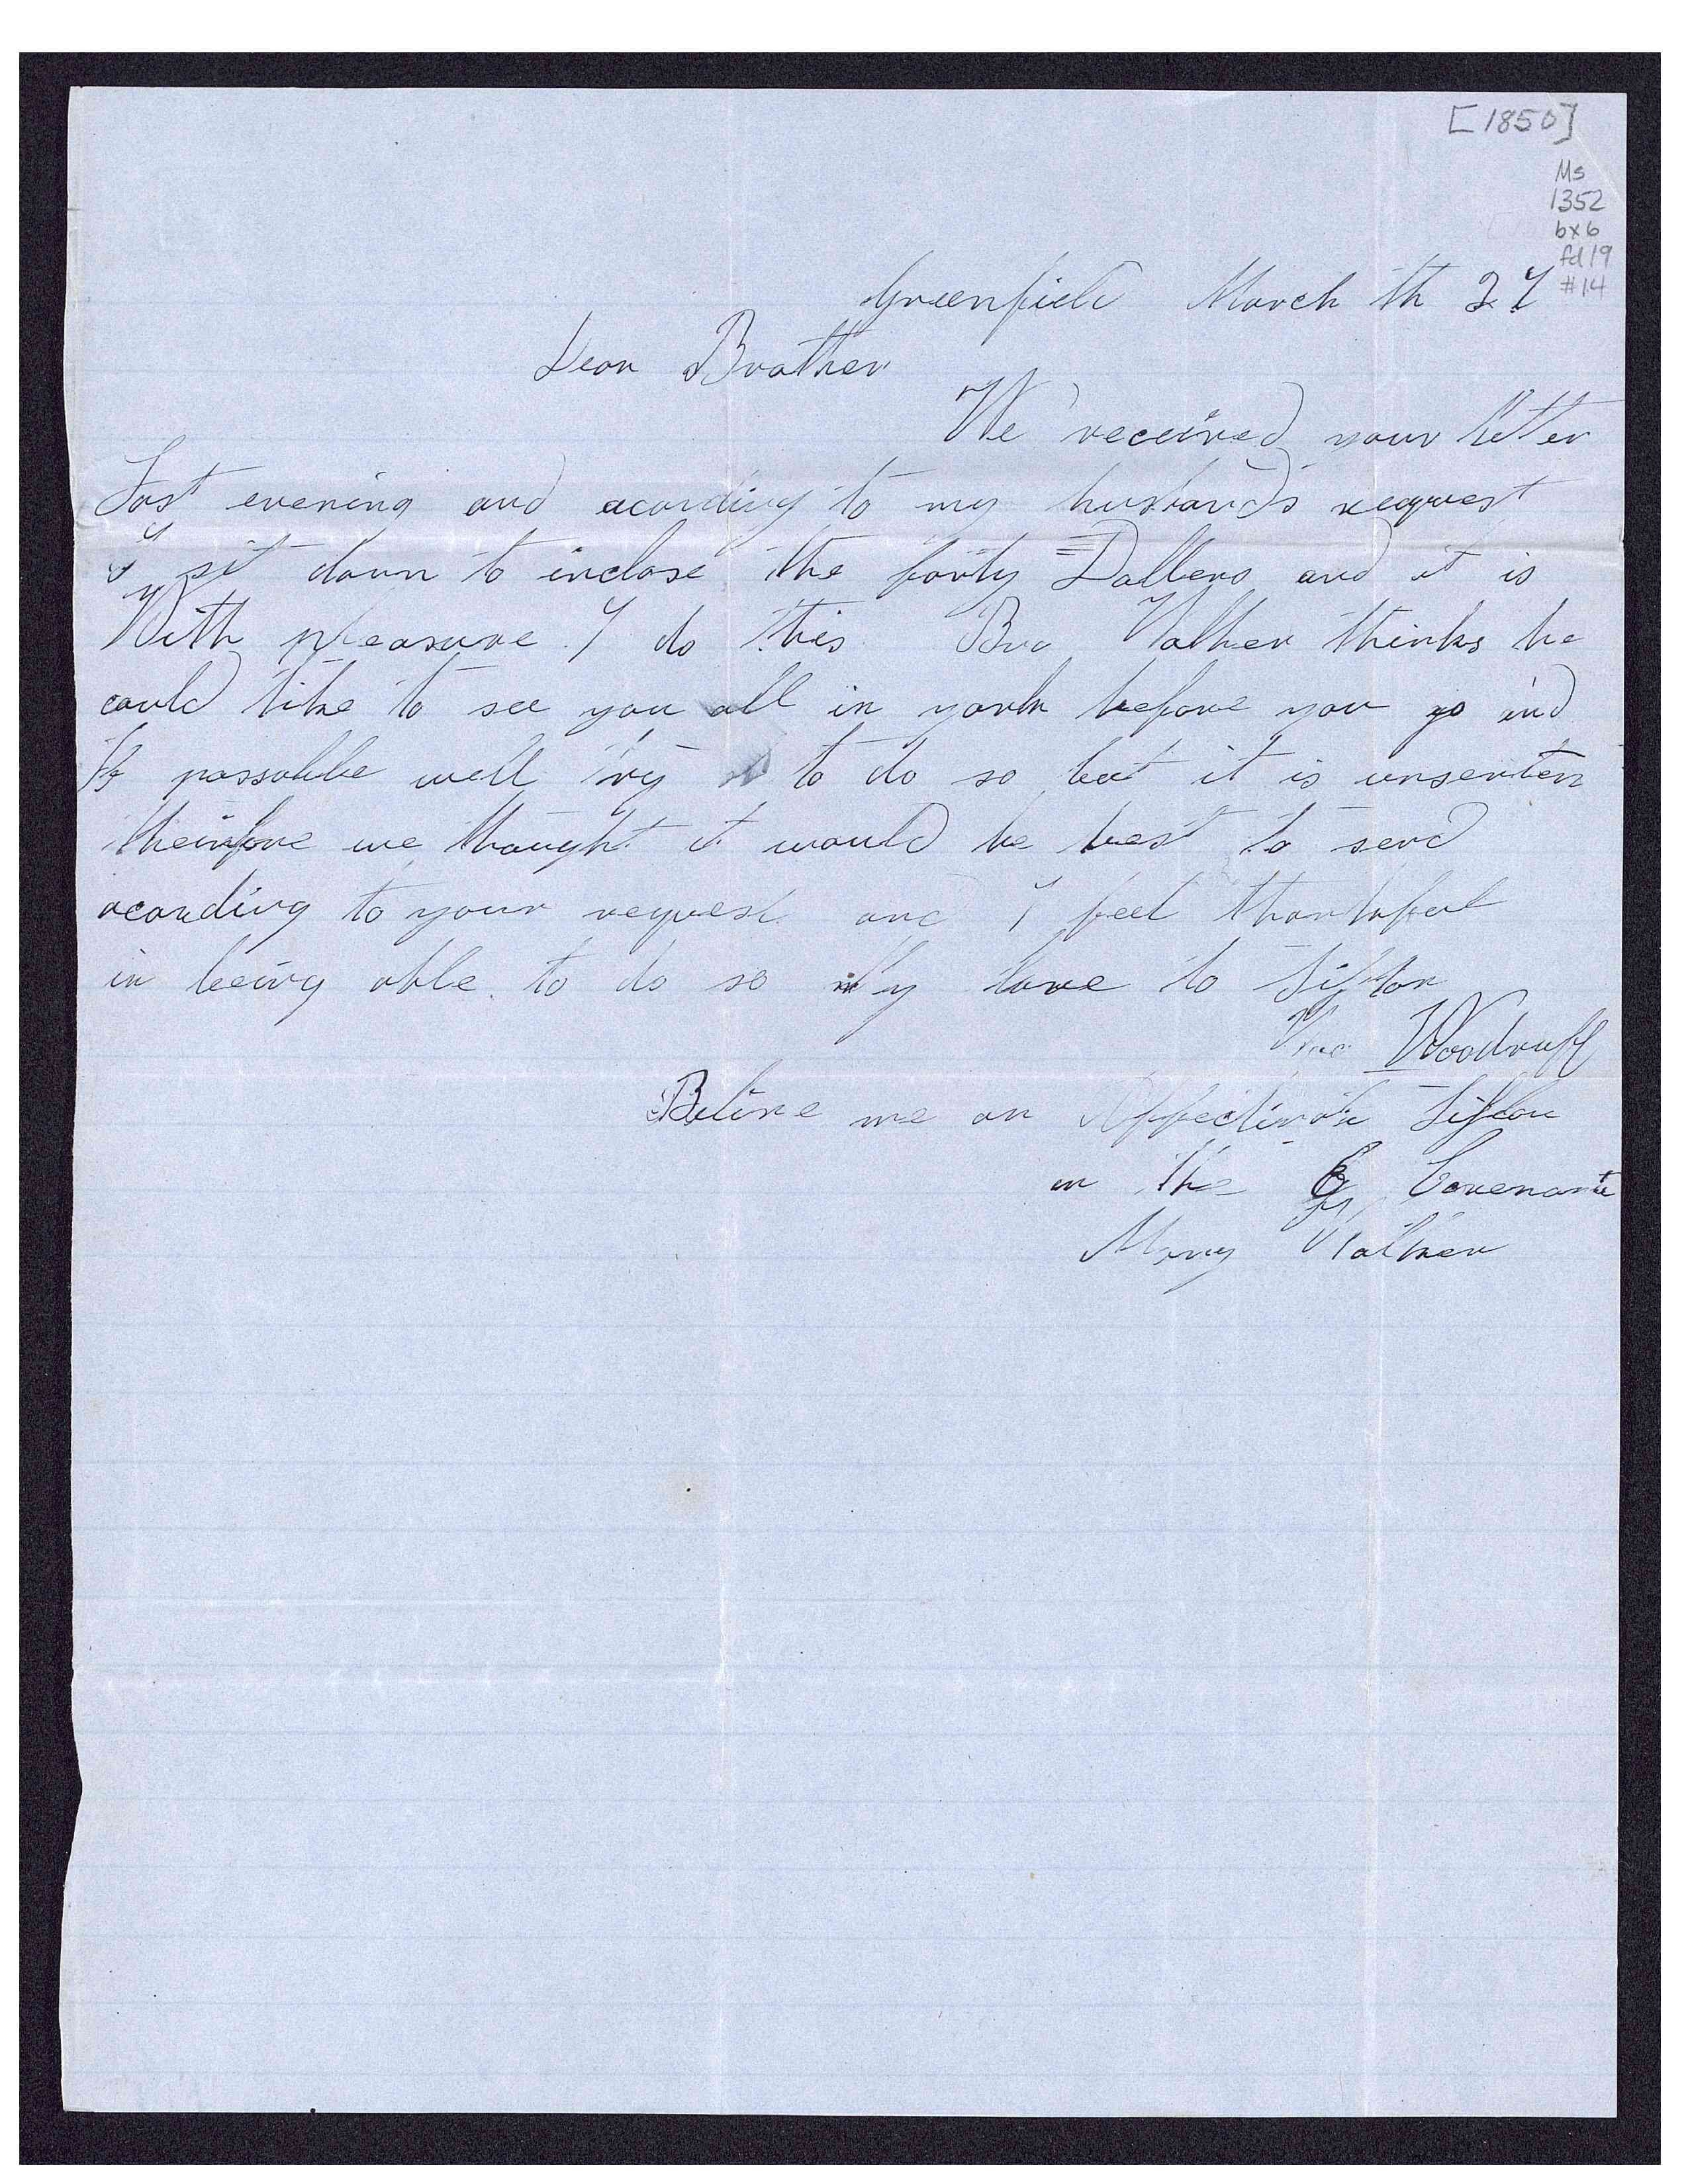 [1850]
Ms
1352
bx6
fd19
#14
Greenfield March th 27
Dear Brother
We received your letter
Last evening and acording to my husband's request
I sit down to inclose the forty Dollers and it is
With pleasure I do this Bro Walker thinks he
could like to see you all in york before you go and
If possable well try to do so but it is unserten
theirfore we thought it would be best to send
acording to your request and I feel thankfull
in being able to do so My love to Sister
Woodruff
Belive me an Affectinate Sister
in the Covenante
Mary Walker